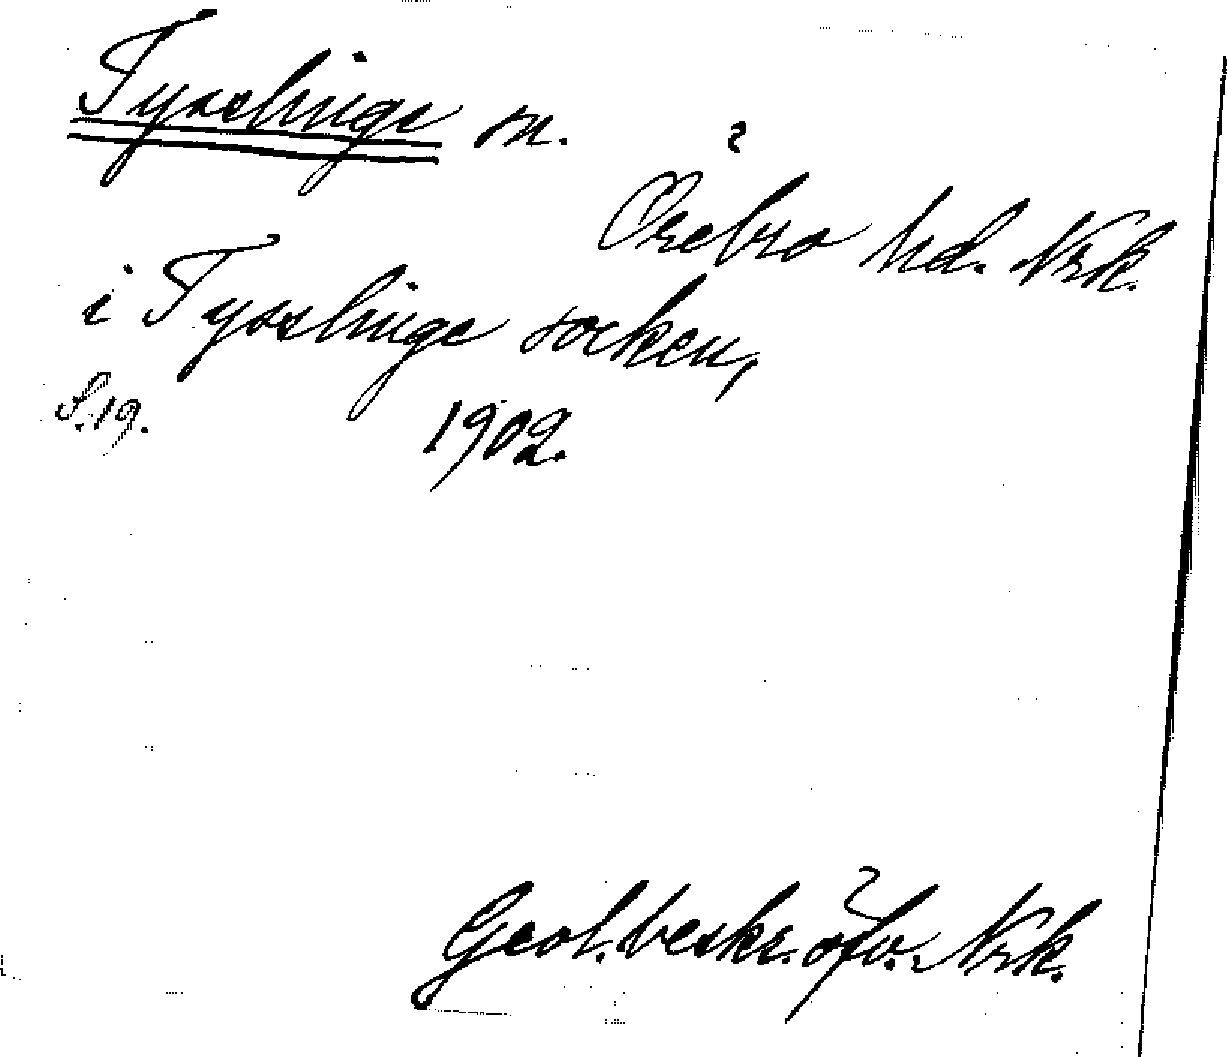 Tysslinge sn.
Örebro hd. Nrk.
i Tysslinge socken,
S. 19.
1902.
Geol. beskr. öfv. Nrk.